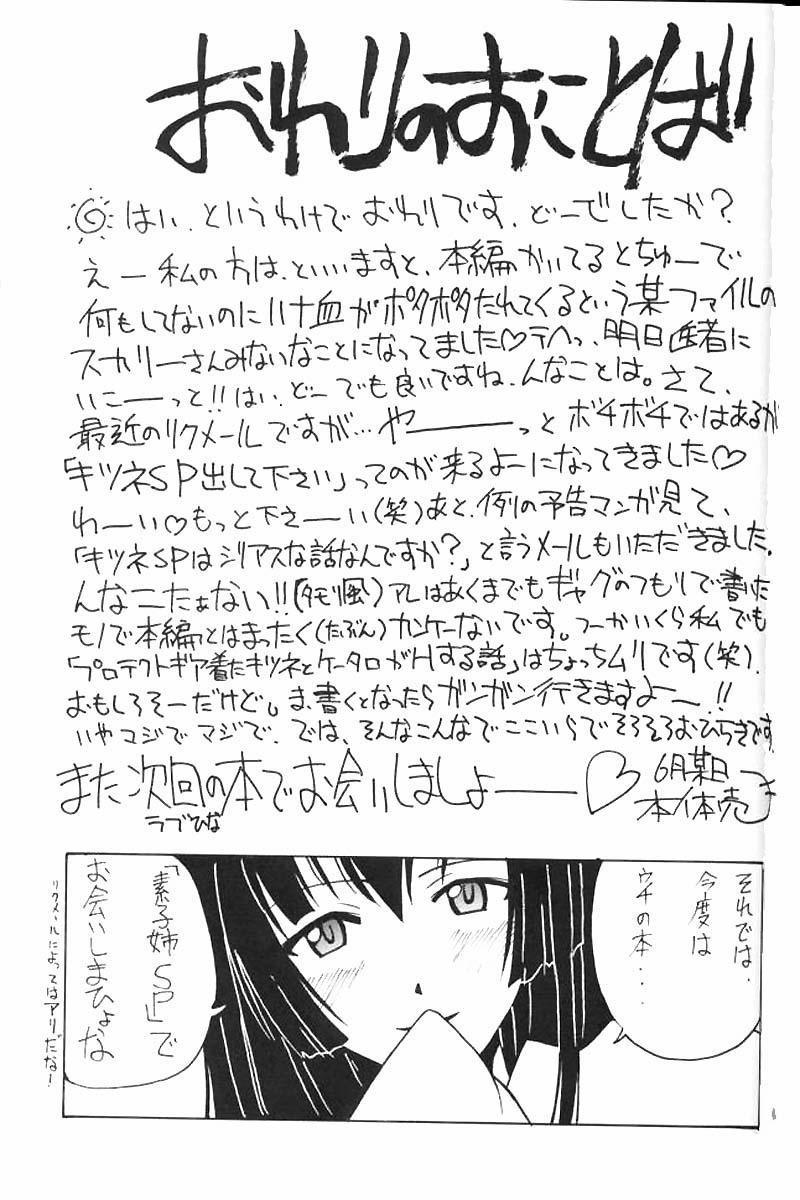 おわりのおことば
はい、というわけでおわりです、どーでしたか?
えー私の方は、といいますと、本編かいてるとちゅーで
何もしてないのにハナ血がポタポタたれてくるという某ファイルの
スカリーさんみないなことになってました♡テヘっ、明日医者に
いこーーっと!!はい、どーでも良いですね、んなことは。さて、
最近のリクメールですが…やーーーっとボチボチではあるが
「キツネSP出して下さい」ってのが来るよーになってきました♡
わーい♡もっと下さーい(笑)あと、例の予告マンガ見て、
「キツネSPはシリアスな話なんですか?」と言うメールもいただきました。
んなこたぁない!!(タモリ風)アレはあくまでもギャグのつもりで書いた
モノで本編とはまったく(たぶん)カンケーないです。つーかいくら私でも
「プロテクトギア着たキツネとケータロがHする話」はちょっちムリです(笑)、
おもしろそーだけど。ま、書くとなったらガンガン行きますよー!!
いやマジでマジで、では、そんなこんなでここいらでそろそろおひらきです
また次回の本でお会いしましょーーー♡
ラブひな
6月某日
本体売つき
それでは、
今度は
ウチの本・・・
「素子姉SP」で
お会いしまひょな
リクメールによってはアリだな!